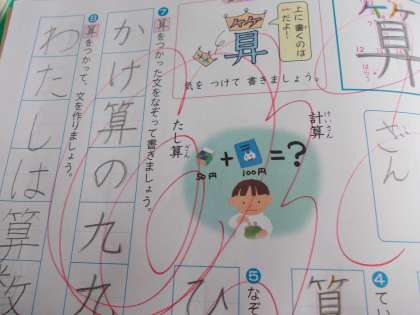 算
ざん
④
てい
算
上に書くのは
だよ！
算
気を つけて 書きましょう。
計算
けいさん
たし算
ざん
50円
+
100円
=?
⑤
なぞ
ひ
⑦ 算をつかった文をなぞって書きましょう。
かけ算の九九
⑧ 算をつかって、文を作りましょう。
わたしは算数